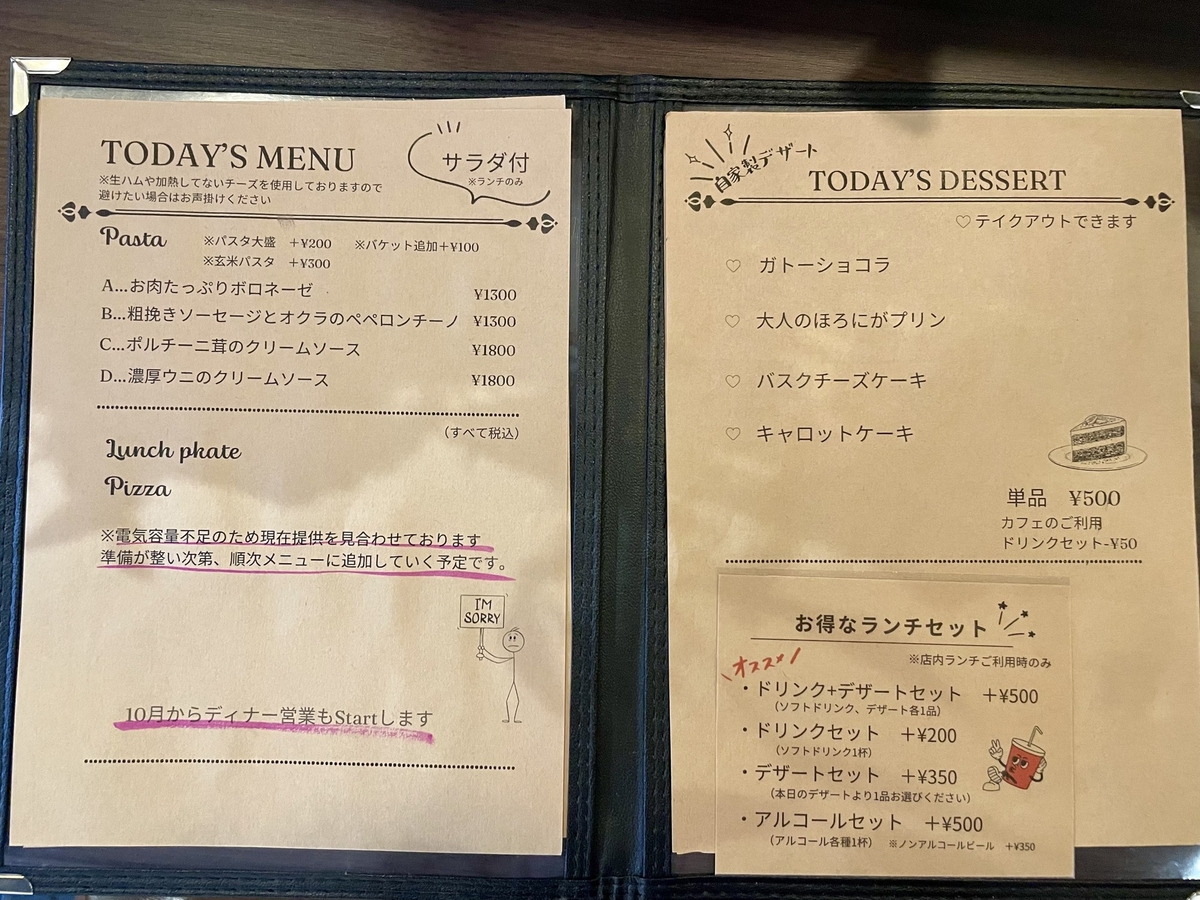 TODAY'S MENU
※生ハムや加熱してないチーズを使用しておりますので
避けたい場合はお声掛けください
サラダ付
※ランチのみ
Pasta
※パスタ大盛 +¥200 ※バケット追加+¥100
※玄米パスタ +¥300
A...お肉たっぷりボロネーゼ ¥1300
B...粗挽きソーセージとオクラのペペロンチーノ ¥1300
C...ポルチーニ茸のクリームソース ¥1800
D...濃厚ウニのクリームソース ¥1800
(すべて税込)
Lunch pkate
Pizza
※電気容量不足のため現在提供を見合わせております
準備が整い次第、順次メニューに追加していく予定です。
I'M
SORRY
10月からディナー営業もStartします
自家製デザート
TODAY'S DESSERT
♡テイクアウトできます
♡ ガトーショコラ
♡ 大人のほろにがプリン
♡ バスクチーズケーキ
♡ キャロットケーキ
単品 ¥500
カフェのご利用
ドリンクセット-¥50
お得なランチセット
※店内ランチご利用時のみ
オススメ
・ドリンク+デザートセット +¥500
(ソフトドリンク、デザート各1品)
・ドリンクセット +¥200
(ソフトドリンク1杯)
・デザートセット +¥350
(本日のデザートより1品お選びください)
・アルコールセット +¥500
(アルコール各種1杯) ※ノンアルコールビール +¥350